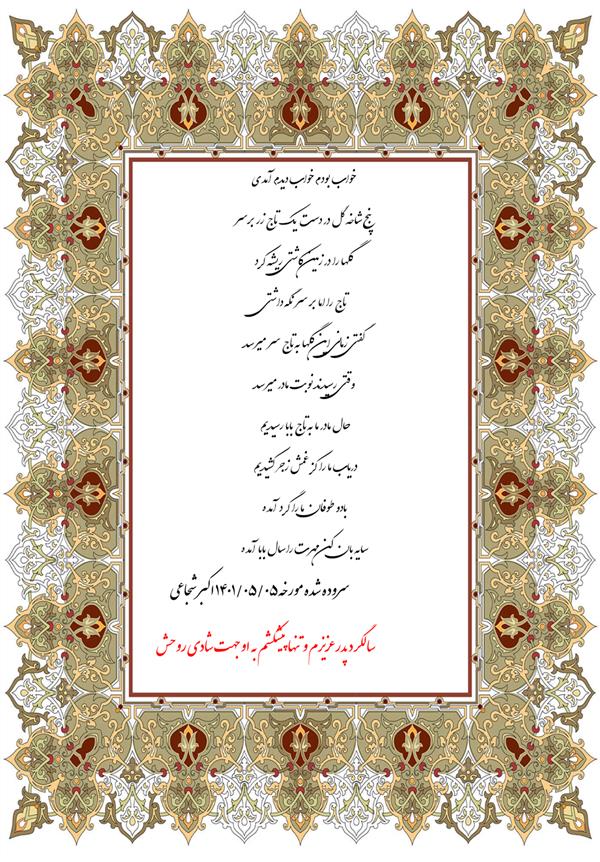 خواب بودم خواب دیدم آمدی
پنج شاخه گل در دست یک تاج زر بر سر
گلها را در زمین کاشتی ریشه کرد
تاج را اما بر سر نگه داشتی
گفتی زمانی این گلها به تاج سر میرسد
وقتی رسیدند نوبت مادر میرسد
حال مادر ما به تاج بابا رسیدیم
دریاب ما را کز غمش زجر کشیدیم
باد و طوفان ما را گرد آمده
سایه بان کن مهرت را سال بابا آمده
سروده شده مورخه ۱۴۰۱/۰۵/۰۵ اکبر شجاعی
سالگرد پدر عزیزم و تنها پیشکشم به او جهت شادی روحش